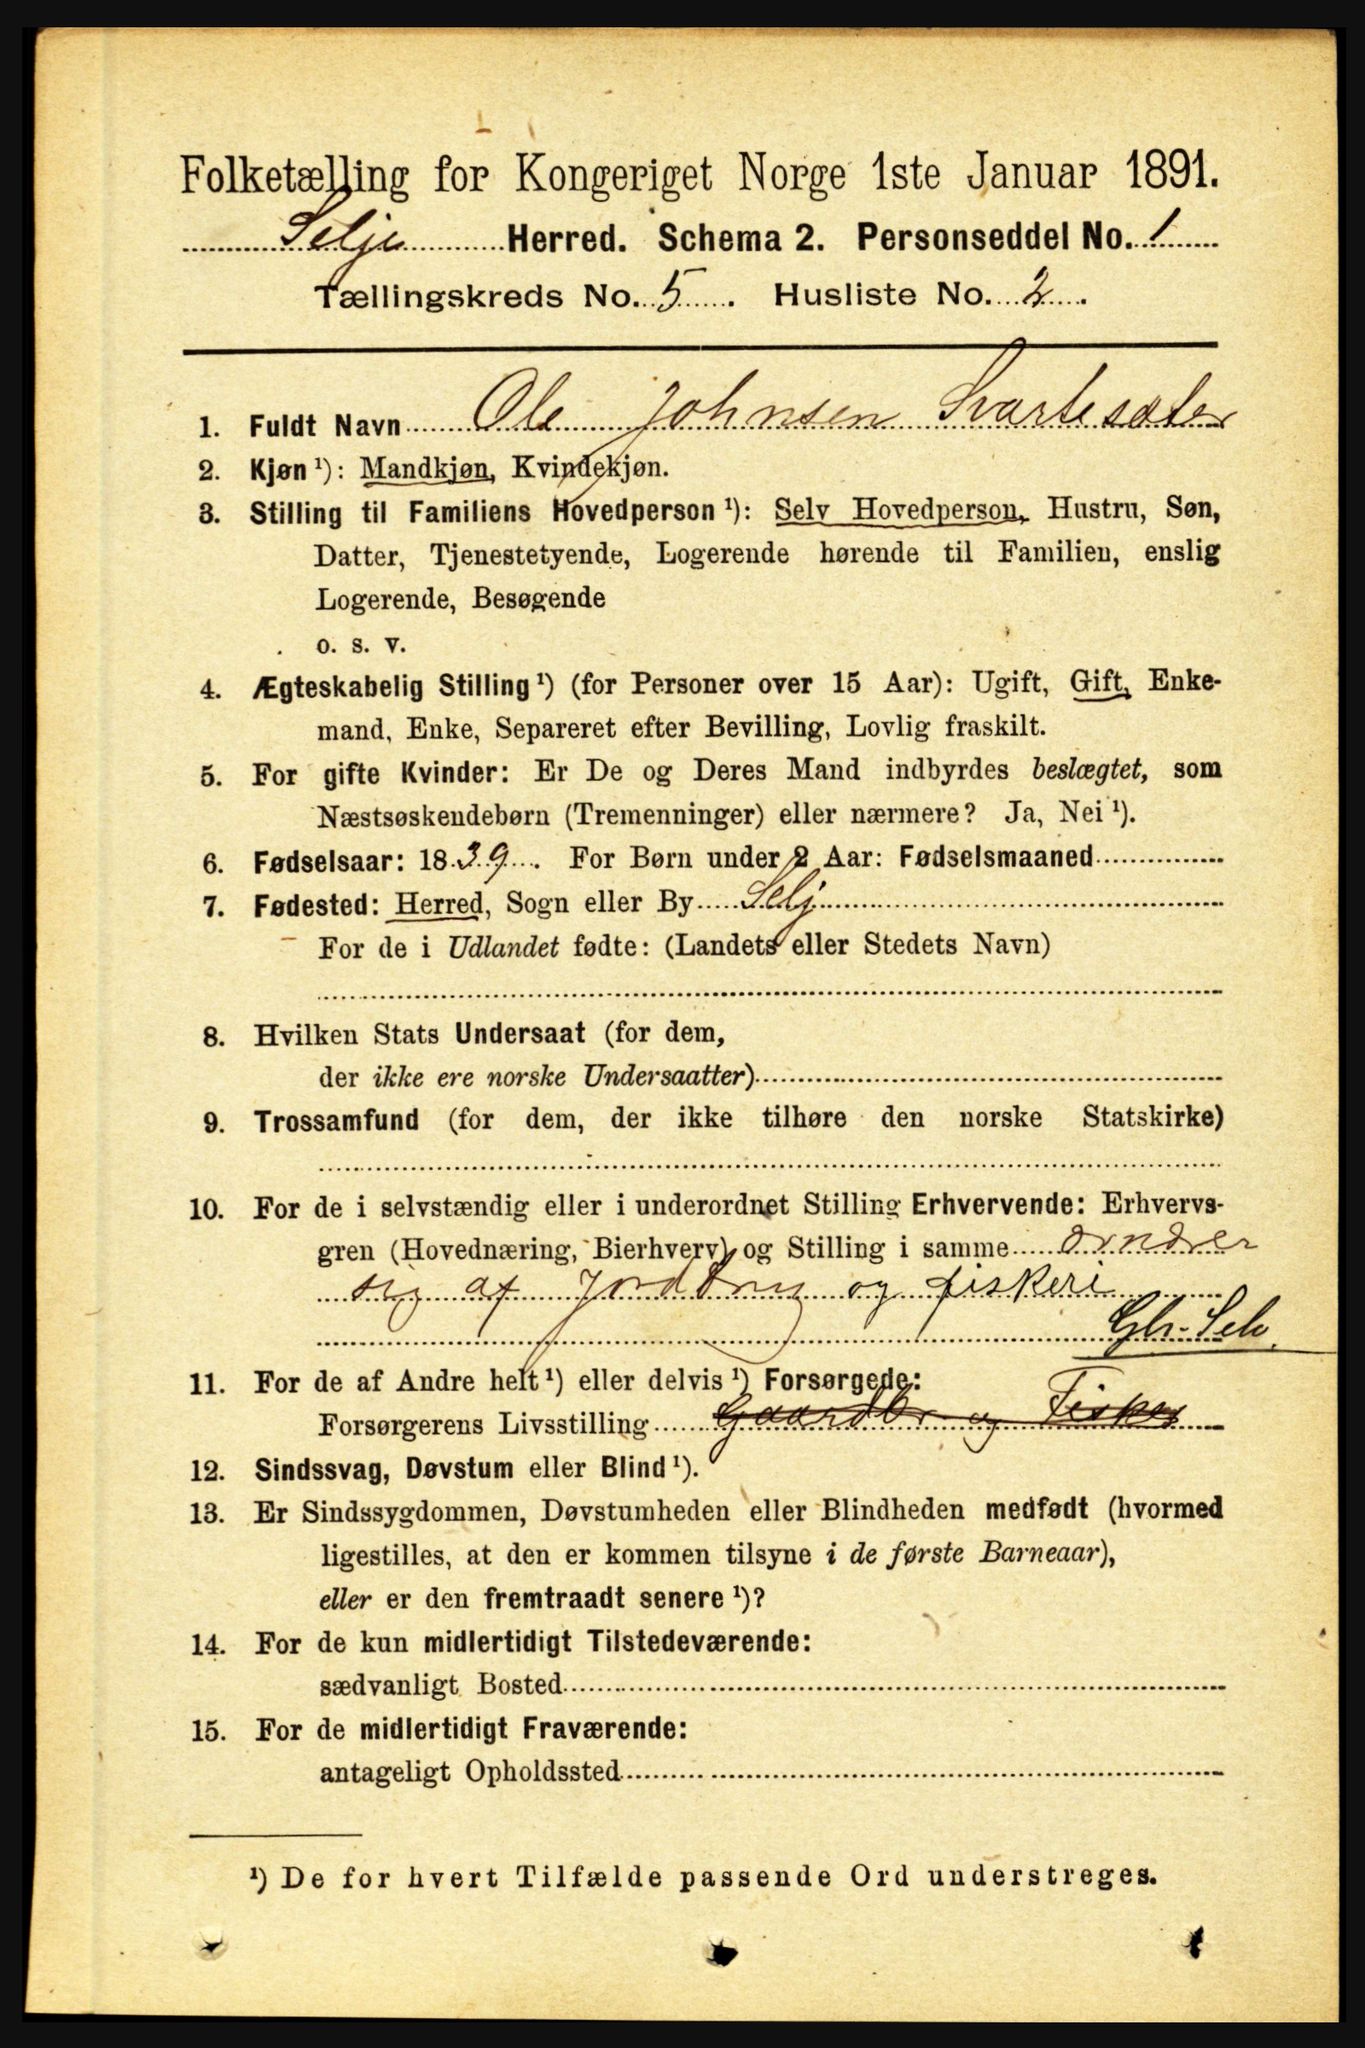 Folketælling for Kongeriget Norge 1ste Januar 1891.
Selje Herred. Schema 2. Personseddel No. 1
Tællingskreds No. 5. Husliste No. 2.
1. Fuldt Navn Ole Johnsen Svartesæter
2. Kjøn ¹): Mandkjøn, Kvindekjøn.
3. Stilling til Familiens Hovedperson ¹): Selv Hovedperson, Hustru, Søn,
Datter, Tjenestetyende, Logerende hørende til Familien, enslig
Logerende, Besøgende
o. s. v.
4. Ægteskabelig Stilling ¹) (for Personer over 15 Aar): Ugift, Gift, Enke-
mand, Enke, Separeret efter Bevilling, Lovlig fraskilt.
5. For gifte Kvinder: Er De og Deres Mand indbyrdes beslægtet, som
Næstsøskendebørn (Tremenninger) eller nærmere? Ja, Nei ¹).
6. Fødselsaar: 1839. For Børn under 2 Aar: Fødselsmaaned
7. Fødested: Herred, Sogn eller By Selj
For de i Udlandet fødte: (Landets eller Stedets Navn)
8. Hvilken Stats Undersaat (for dem,
der ikke ere norske Undersaatter)
9. Trossamfund (for dem, der ikke tilhøre den norske Statskirke)
10. For de i selvstændig eller i underordnet Stilling Erhvervende: Erhvervs-
gren (Hovednæring, Bierhverv) og Stilling i samme ærnærer
sig af Jordbrug og fiskeri
Gbr. Selv.
11. For de af Andre helt ¹) eller delvis ¹) Forsørgede:
Forsørgerens Livsstilling Gaardbr og Fisker
12. Sindssvag, Døvstum eller Blind ¹).
13. Er Sindssygdommen, Døvstumheden eller Blindheden medfødt (hvormed
ligestilles, at den er kommen tilsyne i de første Barneaar),
eller er den fremtraadt senere ¹)?
14. For de kun midlertidigt Tilstedeværende:
sædvanligt Bosted
15. For de midlertidigt Fraværende:
antageligt Opholdssted
¹) De for hvert Tilfælde passende Ord understreges.